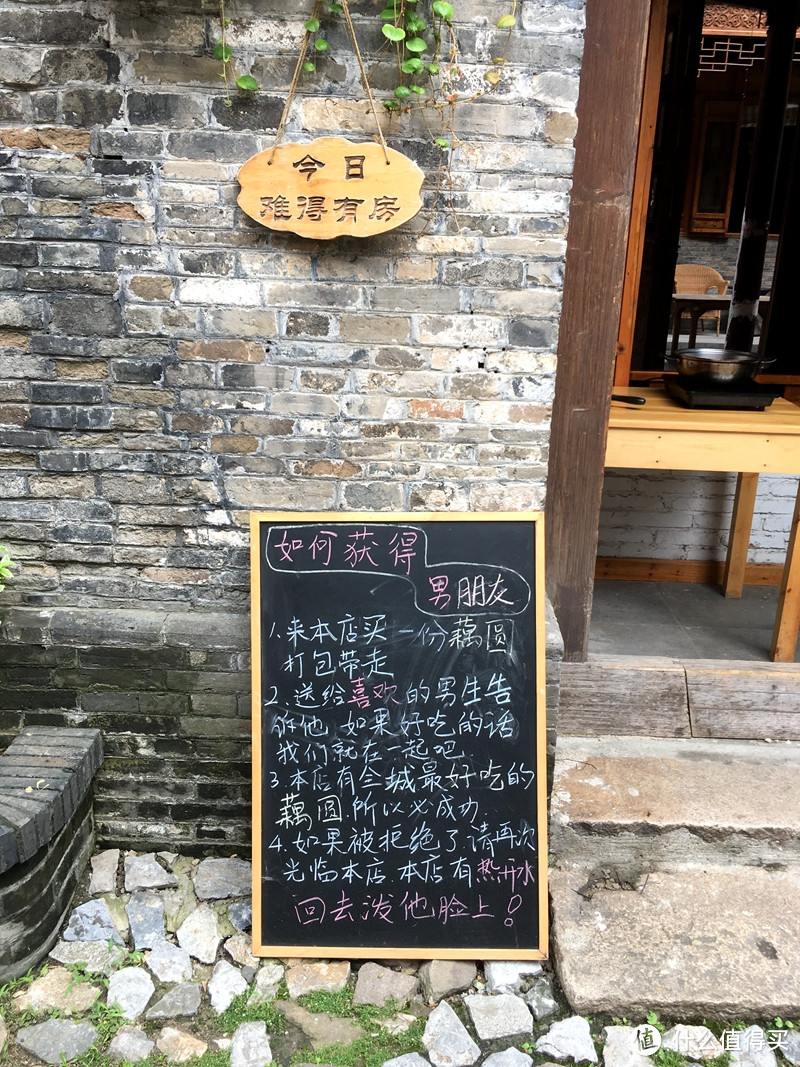 今日
难得有房
如何获得
男朋友
1.来本店买一份藕圆
打包带走
2.送给喜欢的男生告
诉他.如果好吃的话
我们就在一起吧.
3.本店有全城最好吃的
藕圆.所以必成功.
4.如果被拒绝了.请再次
光临本店.本店有热开水
回去泼他脸上!
值 什么值得买